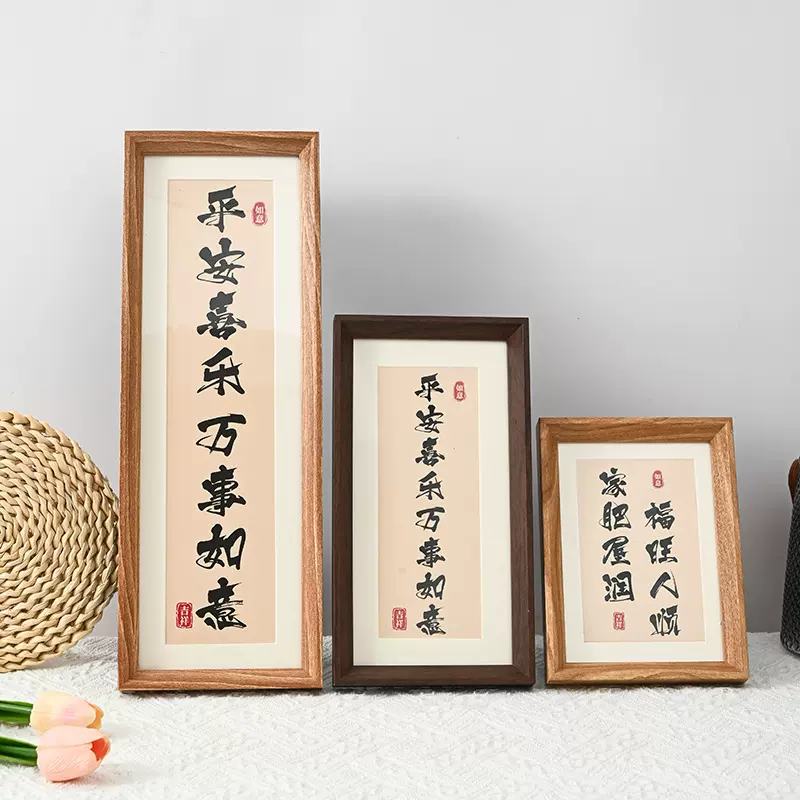 平安喜乐万事如意
如意
吉祥
平安喜乐万事如意
如意
吉祥
福旺人顺
家肥屋润
如意
吉祥